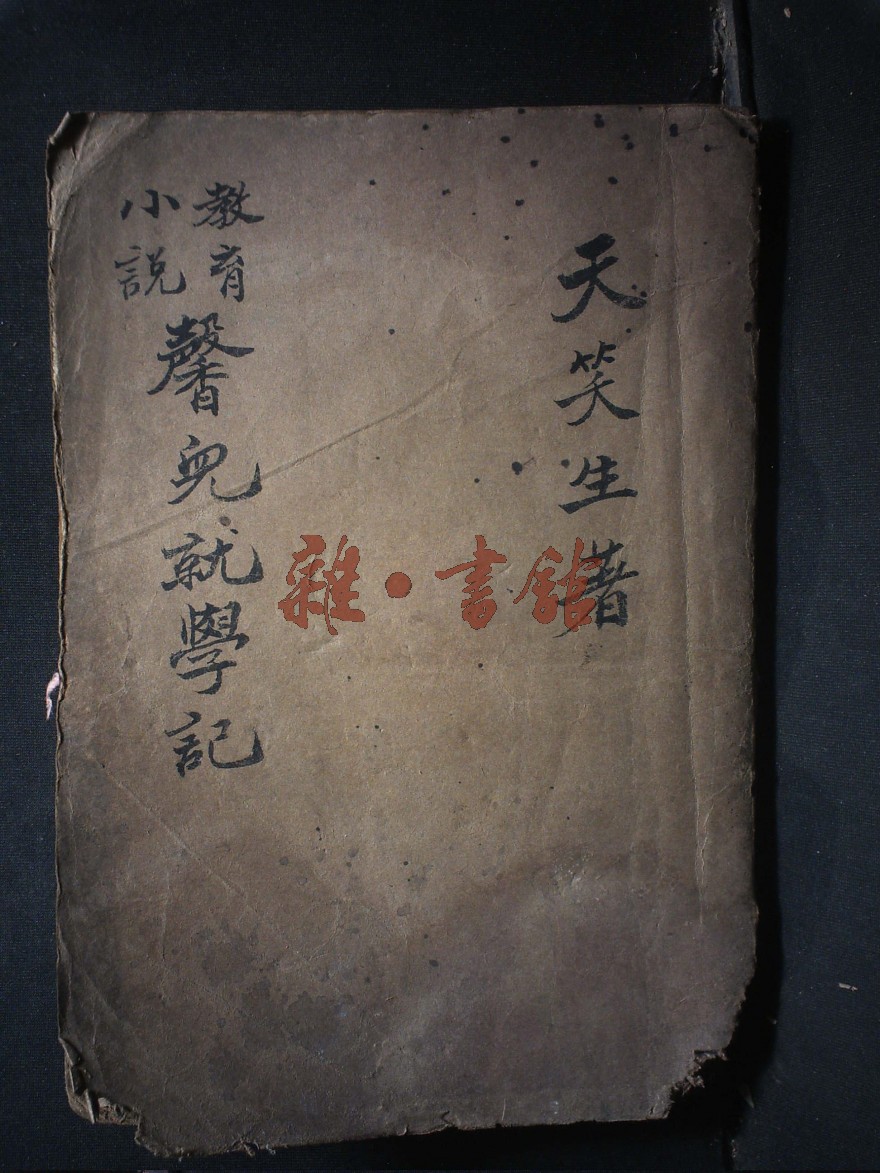 天笑生著
教育
小説
馨兒就學記
雜·書館